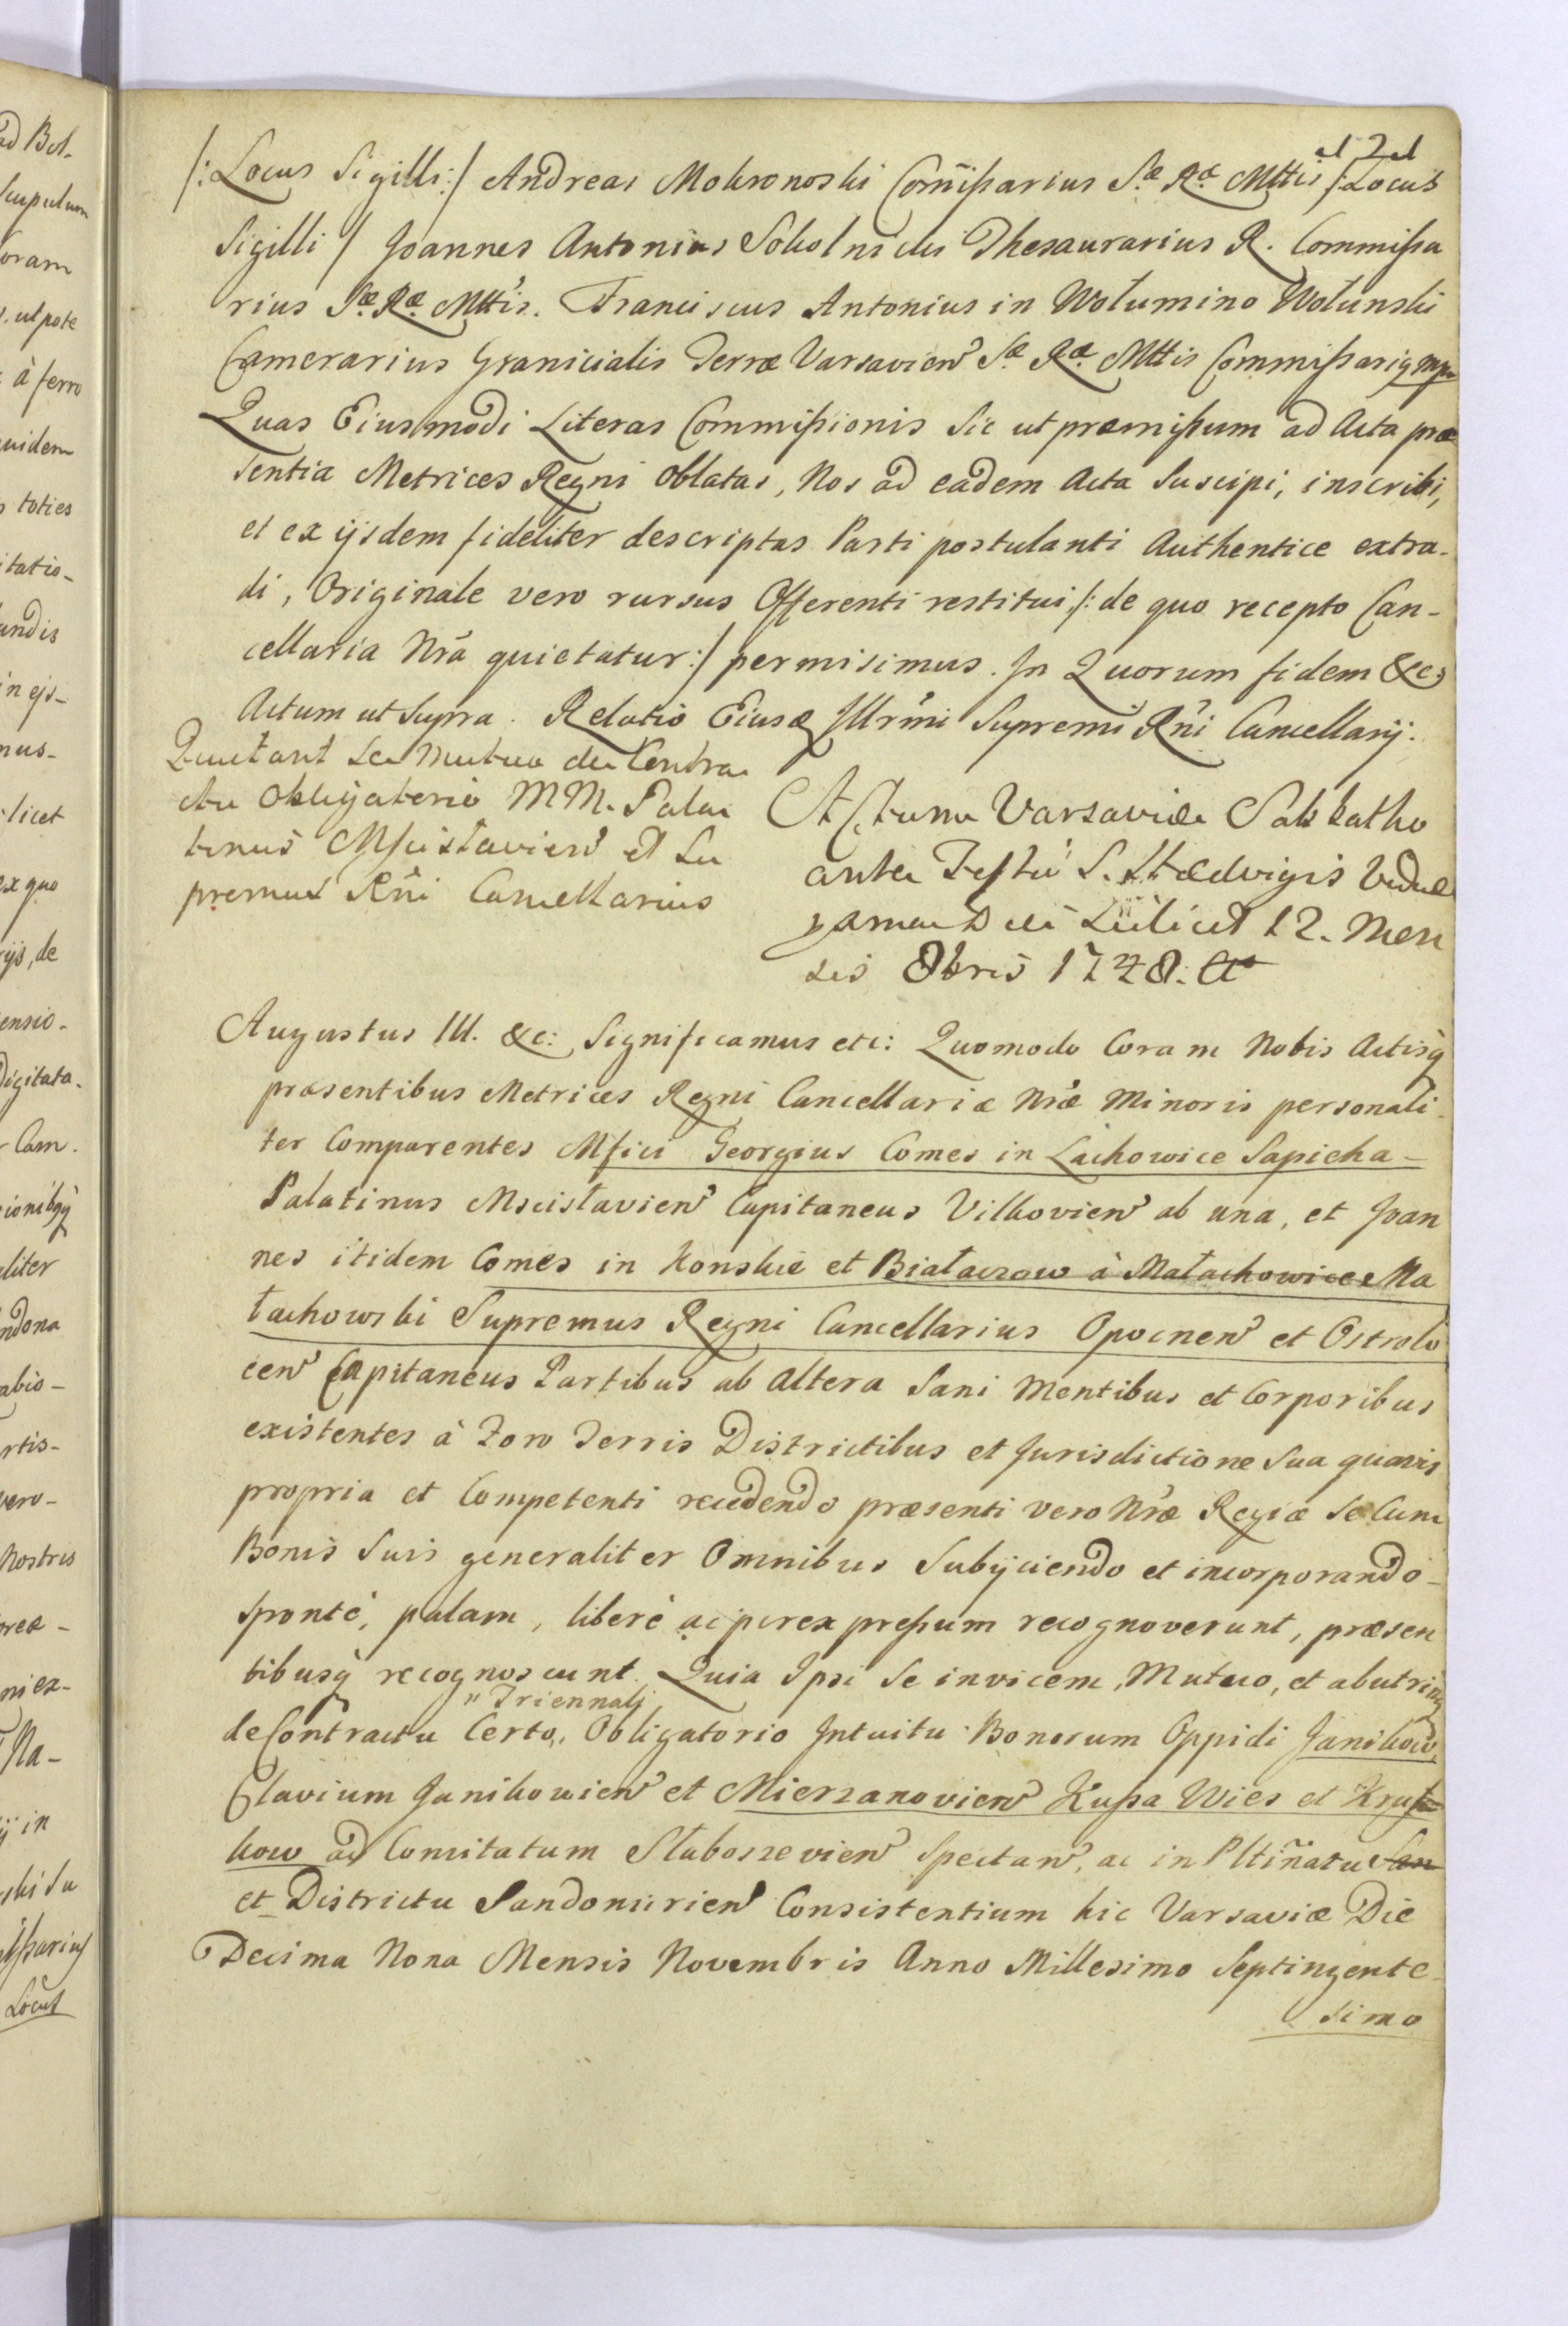 /: Locus Sigilli :/ Andreas Mokronoski Com̃ißarius Sæ Ræ Mttis /: Locus
Sigilli / Joannes Antonius Sokolnicki Thesaurarius R. Commißa
rius Sæ Ræ Mttis. Franciscus Antonius in Wołumino Wołunski
Camerarius Granicialis Terræ Varsavien̄ Sæ Ræ Mttis Commißariq mp
Quas Eiusmodi Literas Commißionis Sic ut præmißum ad Acta præ
sentia Metrices Regni Oblatas, Nos ad eadem Acta Suscipi, inscribi,
et ex ijsdem fideliter descriptas Parti postulanti Authentice extra-
di, Originale vero rursus Offerenti restitui /: de quo recepto Can-
cellaria Nrã quietatur :/ permisimus. In Quorum fidem &c:
Actum ut Supra. Relatio Eiusq Illrm̃i Supremi Rñi Cancellarij.
Quietant Se Mutuo de Contra
ctu Obligatorio MM. Pala
tinus Mscistavien̄ et Su
premus Rñi Cancellarius
Actum Varsaviæ Sabbatho
ante Festũ S. Hædvigis Viduæ
Die Scilicet 12. Men
sis 8bris 1748. Ao
Augustus III. &c: Significamus etc: Quomodo Coram Nobis Actisq̀
præsentibus Metrices Regni Cancellariæ Nræ Minoris personali-
ter Comparentes Mfici Georgius Comes in Lachowice Sapieha-
Palatinus Mscisłavien̄ Capitaneus Vilkovien̄ ab una, et Joan
nes itidem Comes in Konskie et Białaczow à Małachowice Ma
łachowski Supremus Regni Cancellarius Opocnen̄ et Ostrolo
cen̄ Capitaneus Partibus ab Altera Sani Mentibus et Corporibus
existentes à Foro Terris Districtibus et Jurisdictione Sua quavis
propria et Competenti recedendo præsenti vero Nræ Regiæ Se Cum
Bonis Suis generaliter Omnibus Subijciendo et incorporando-
sponté, palam, liberè ac per expreßum recognoverunt, præsen
tibusq̀ recognoscunt. Quia Ipsi Se invicem, Mutuo, et abutrinq
" Triennalj
de Contractu Certo,, Obligatorio Intuitu Bonorum Oppidi Janikow,
Clavium Janikowien̄ et Mierzanovien̄ Kußa Wies et Kruß
kow ad Comitatum Słaboszevien̄ Spectan̄, ac in Pltiñatu San
et Districtu Sandomirien̄ Consistentium hic Varsaviæ Die
Decima Nona Mensis Novembris Anno Millesimo Septingente-
simo